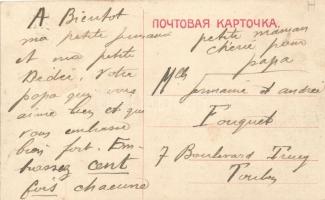 ПОЧТОВАЯ КАРТОЧКА.
A Bientot
ma petite
et ma petite
Dédée, Votre
papa qui vous
aime bien et qui
vous embrasse
bien fort. Em-
brassez cent
fois chacune
petite maman
chérie pour
papa
Mlles
Germaine et Andrée
Fouquet
7 Boulevard Trucy
Toulon